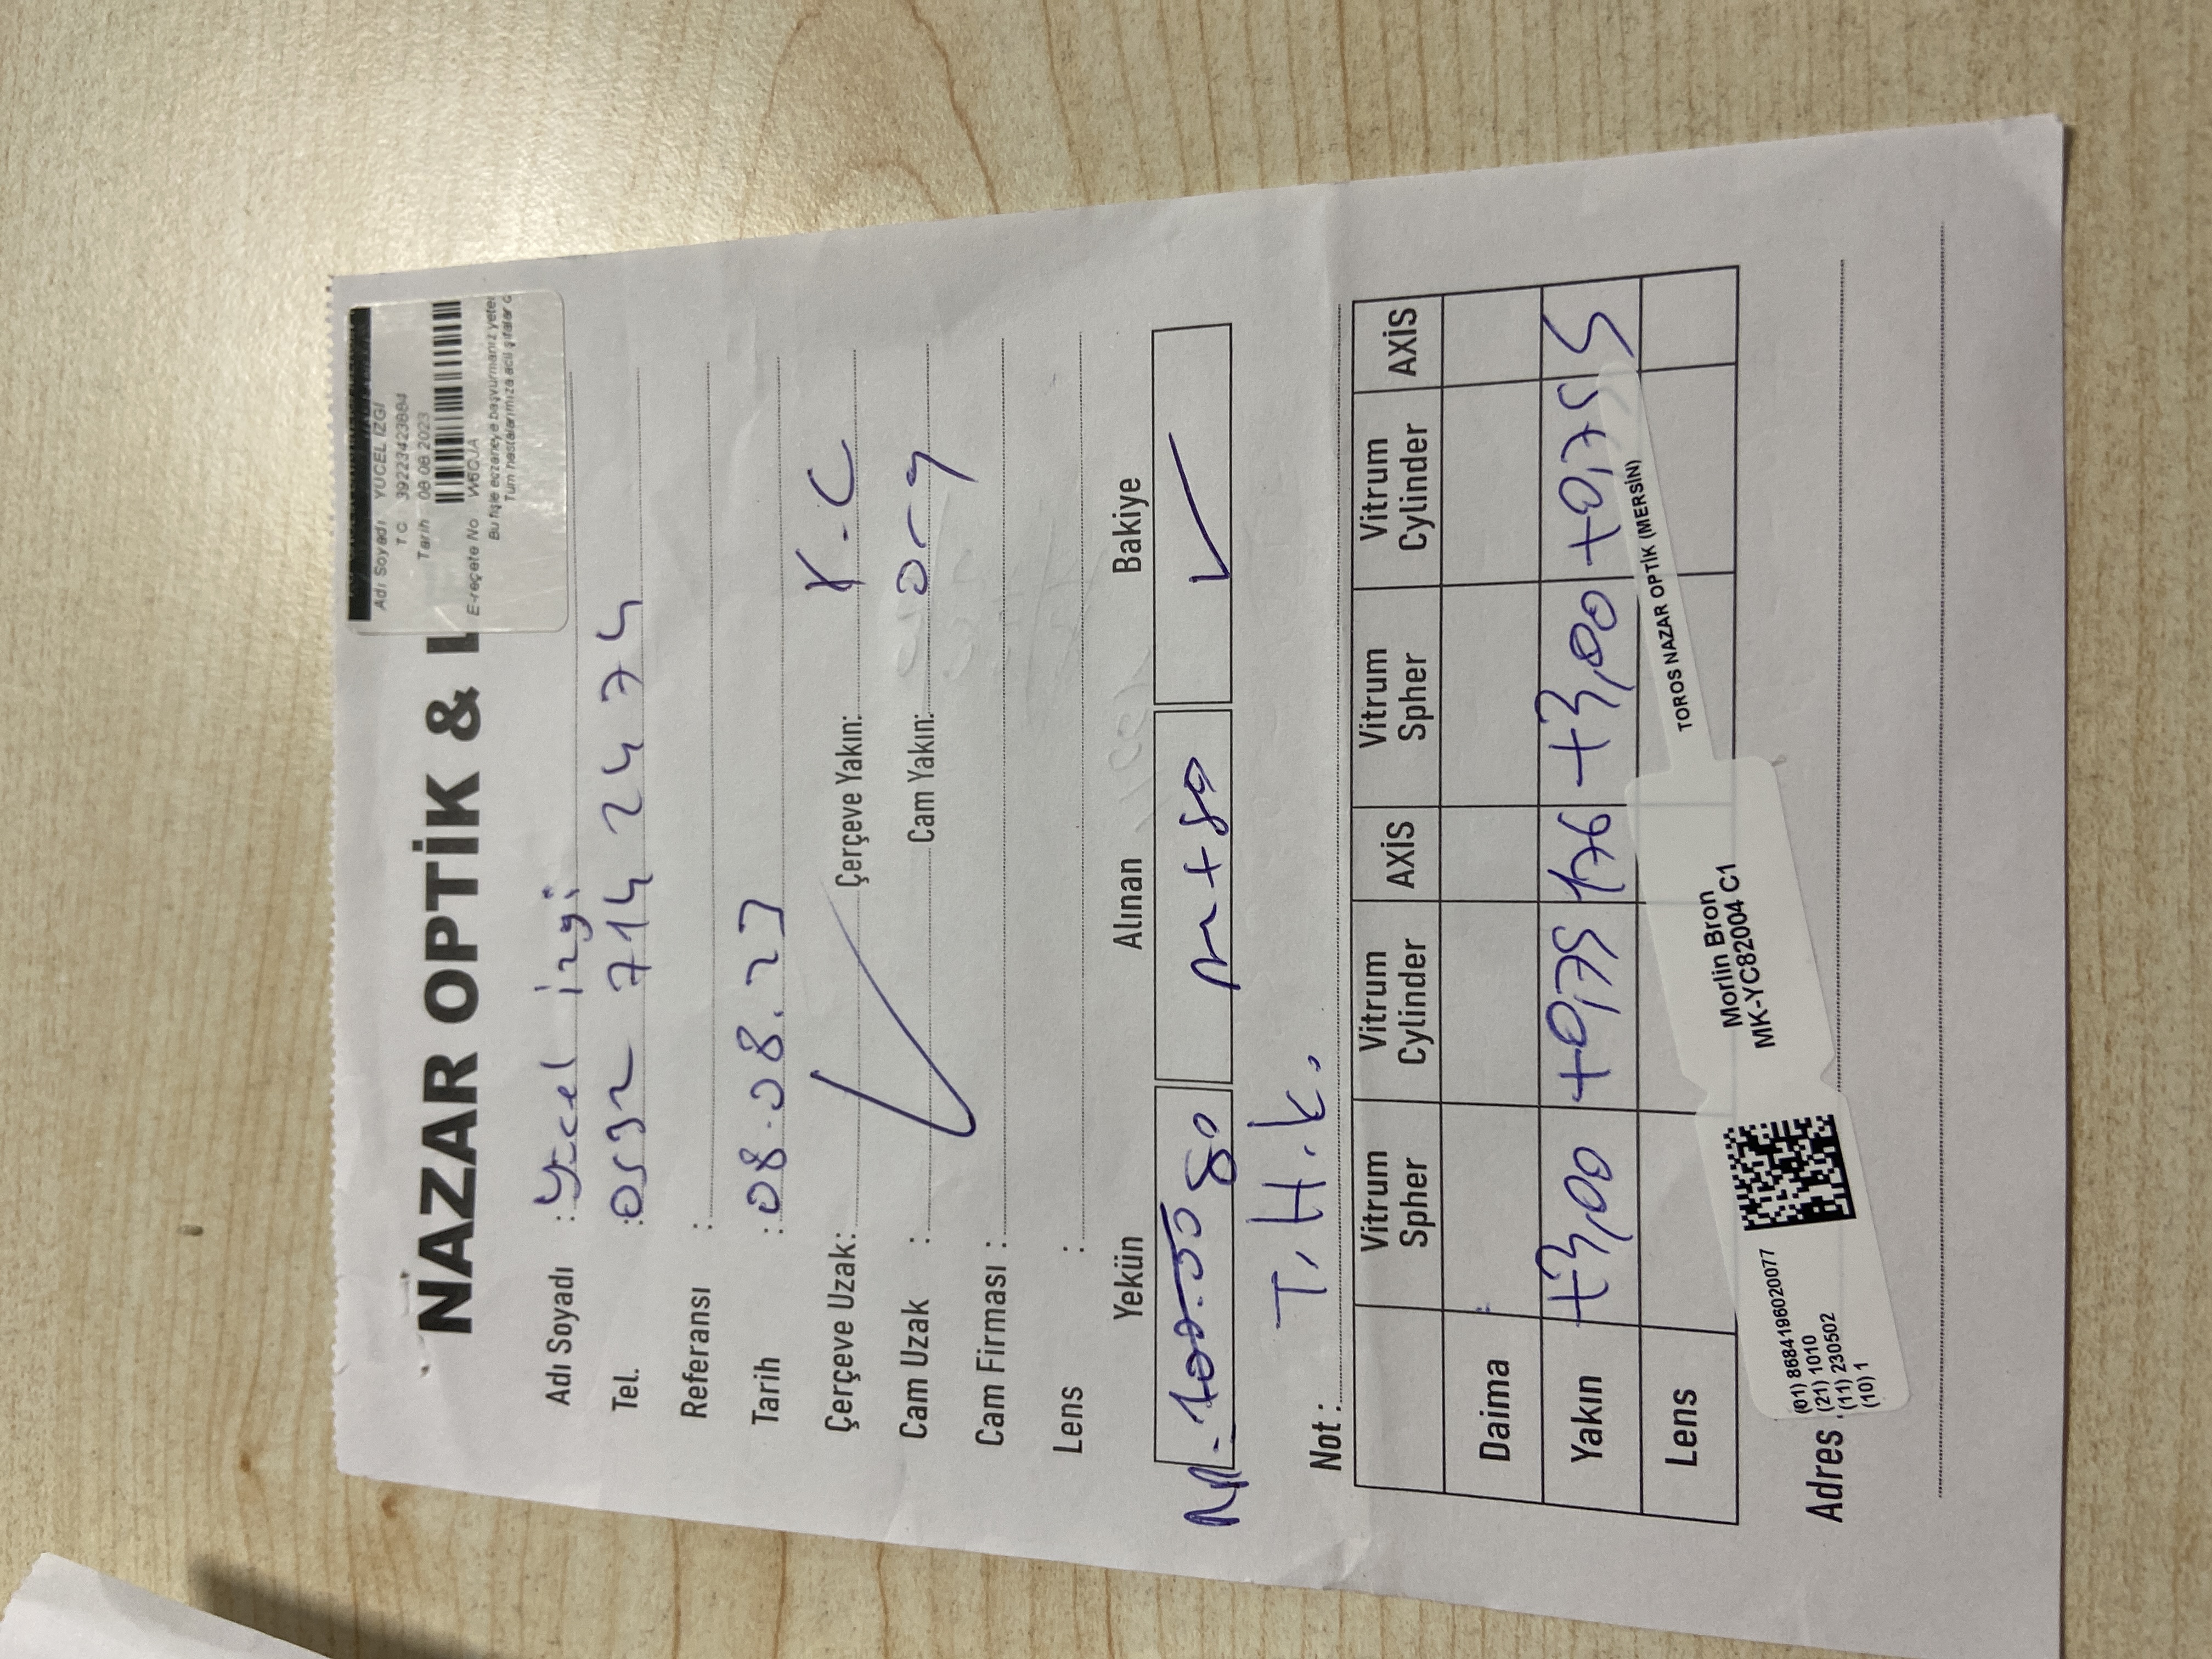 NAZAR OPTİK & L
Adı Soyadı YÜCEL İZGİ
T C 39223423884
Tarih 08 08 2023
E-reçete No W6CJA
Bu fişle eczaneye başvurmanız yeter
Tüm hastalarımıza acil şifalar d
Adı Soyadı : Yücel izgi
Tel. : 0532 714 24 74
Referansı :
Tarih : 08.08.23
Çerçeve Uzak: Çerçeve Yakın: Y.C
Cam Uzak : Cam Yakın: org
Cam Firması :
Lens :
Yekün Alınan Bakiye
100.00 80 m+80
Not : T.H.k.
Vitrum Spher Vitrum Cylinder AXİS Vitrum Spher Vitrum Cylinder AXİS
Daima
Yakın +3,00 +0,75 176 +3,00 +0,75 5
Lens
TOROS NAZAR OPTİK (MERSİN)
Morlin Bron
MK-YC82004 C1
(01) 8684196020077
(21) 1010
(11) 230502
(10) 1
Adres